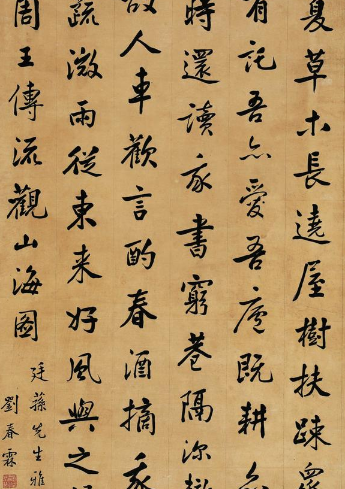 夏草木長遶屋樹扶踈眾
有託吾亦愛吾廬既耕亦
時還讀我書窮巷隔深轍
故人車歡言酌春酒摘我
疏微雨從東来好風與之
周王傳流觀山海圖
廷蓀先生雅
劉春霖